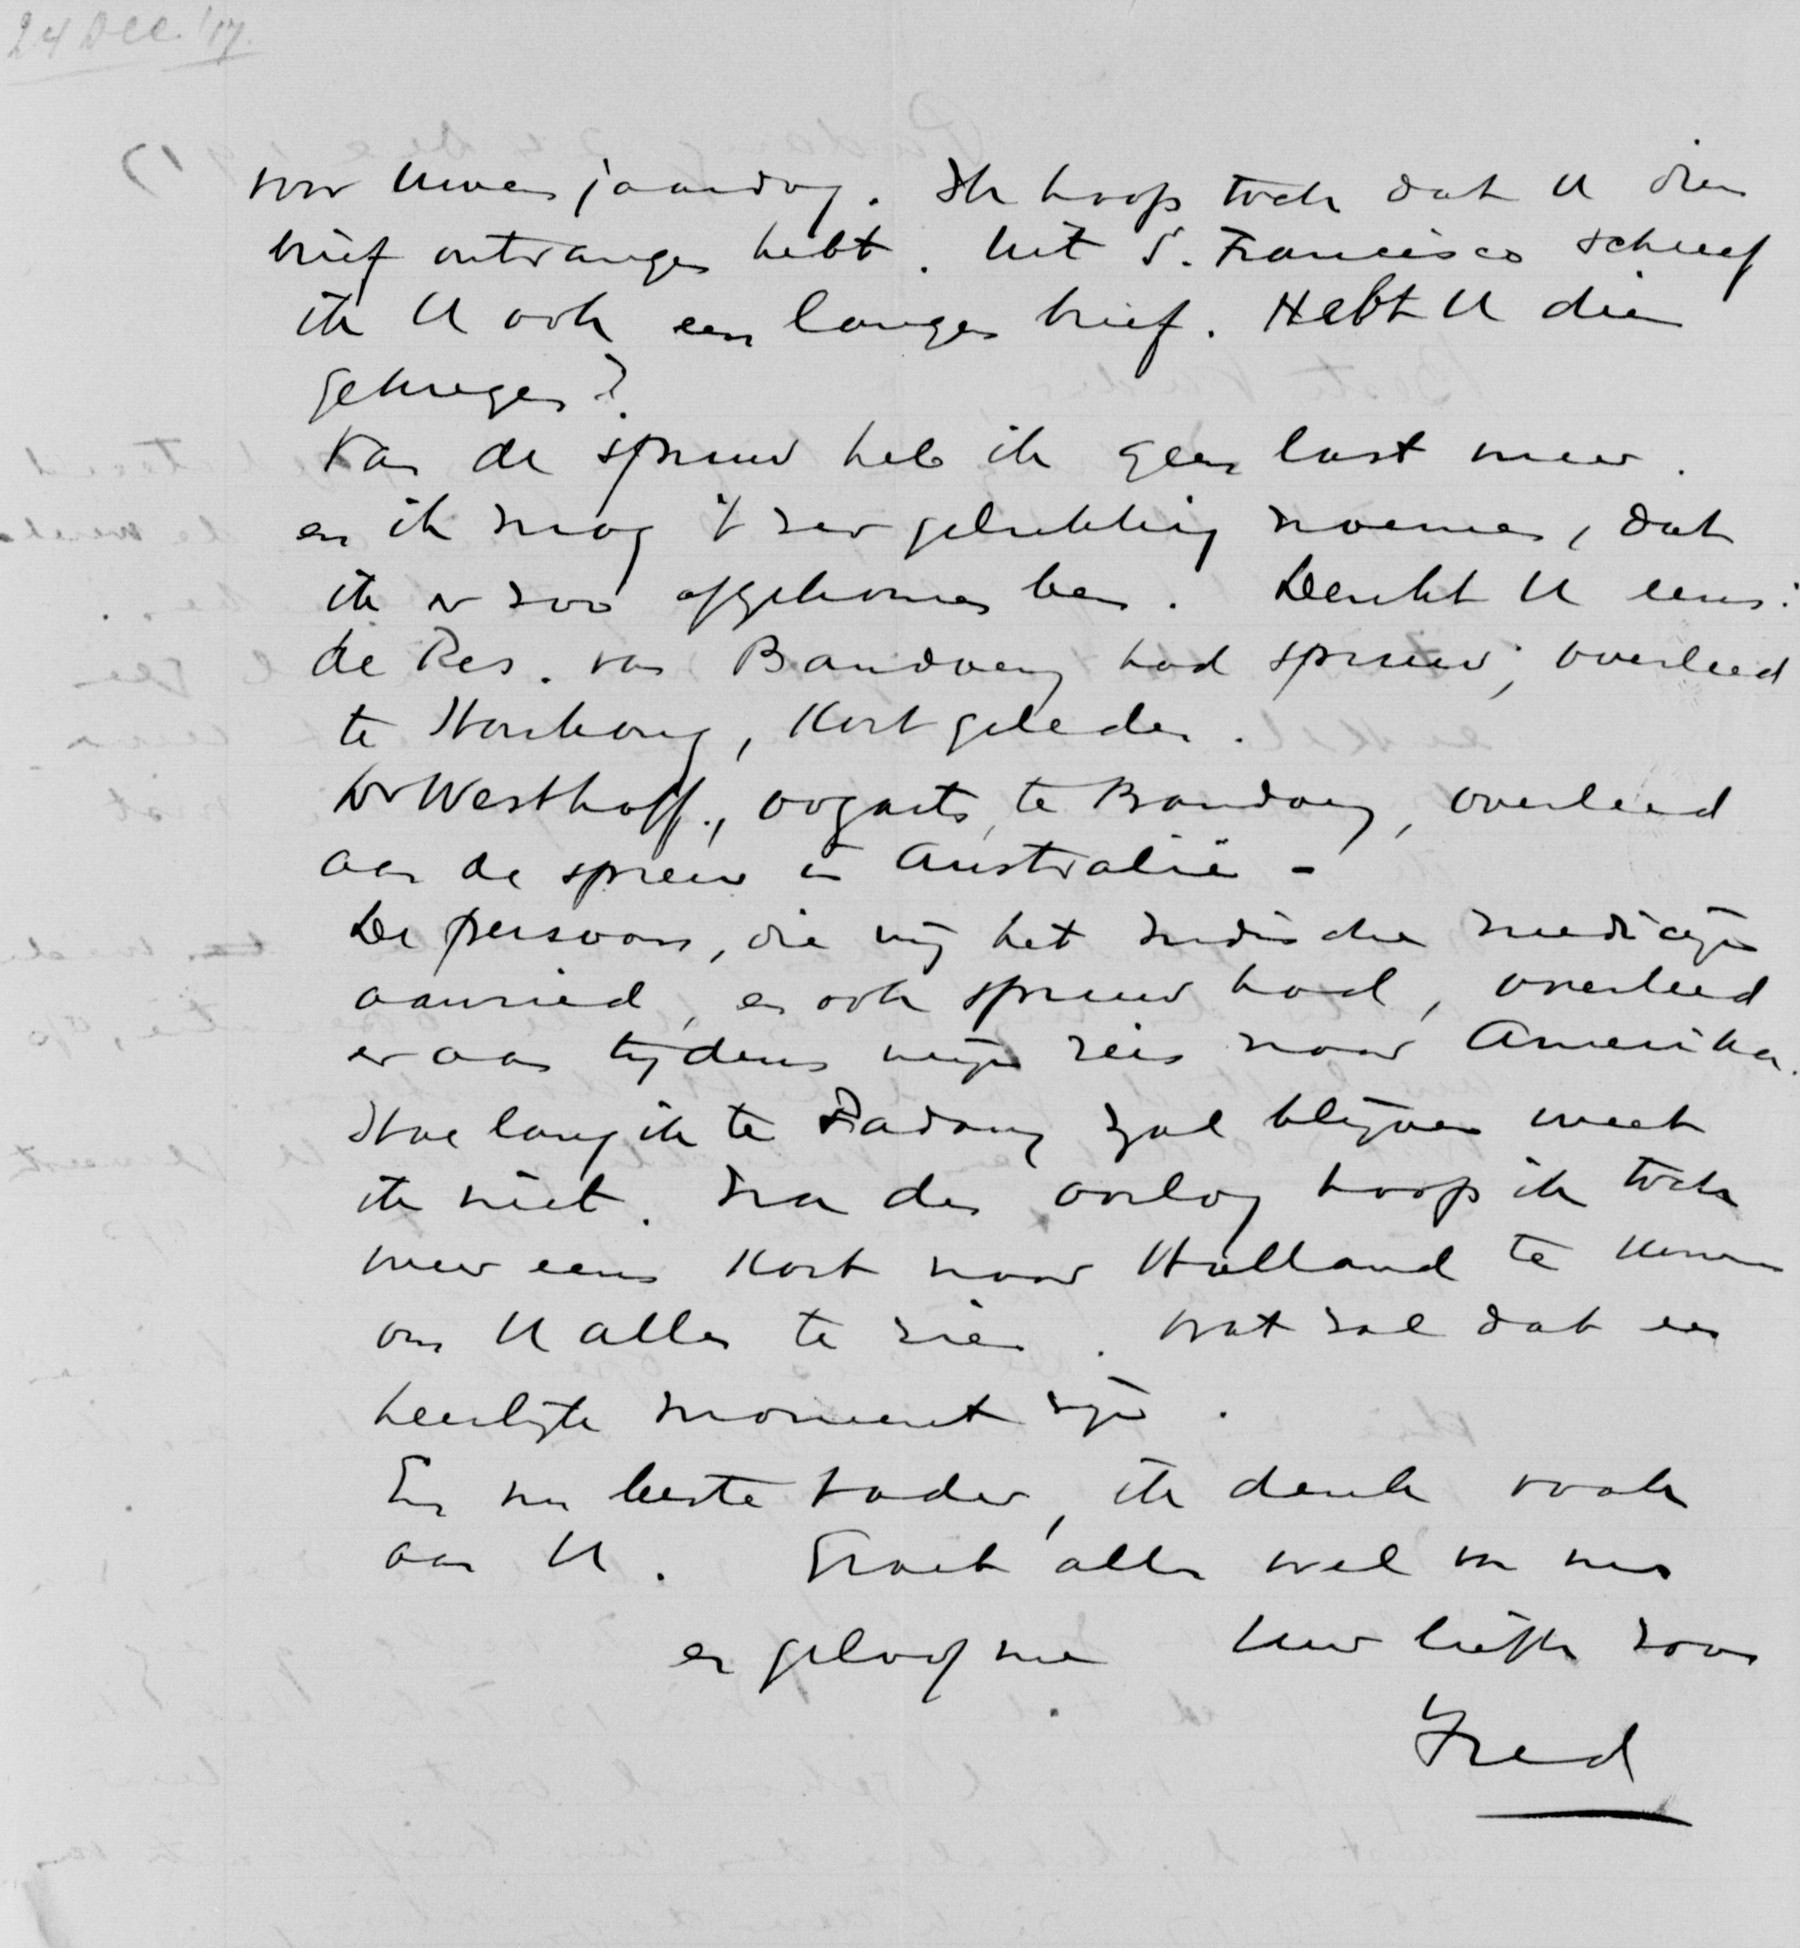 24 Dec. '17.
voor Uwen jaardag. Ik hoop toch dat U dien
brief ontvangen hebt. Uit S. Francisco schreef
ik U ook een langen brief. Hebt U dien
gekregen?
Van de spruw heb ik geen last meer.
en ik mag 't zeer gelukkig noemen, dat
ik er zoo afgekomen ben. Denkt U eens:
de Res. van Bandoeng had spruw; overleed
te Honkong, kort geleden.
Dr Westhoff, oogarts te Bandoeng, overleed
aan de spruw in Australië -
De persoon, die mij het Indische medicijn
aanried, en ook spruw had, overleed
er aan tijdens mijn reis naar Amerika.
Hoe lang ik te Padang zal blijven weet
ik niet. Na den oorlog hoop ik toch
weer eens kort naar Holland te komen
om U allen te zien. Wat zal dat een
heerlijk moment zijn.
En nu beste Vader, ik denk vaak
aan U. Groet allen wel van mij
en geloof me Uw liefh. zoon
Fred